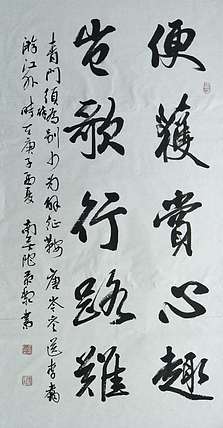 便獲賞心趣
豈歌行路難
青門須醉別少為解征鞍唐岑參送李翥
游江外時在庚子夏南書